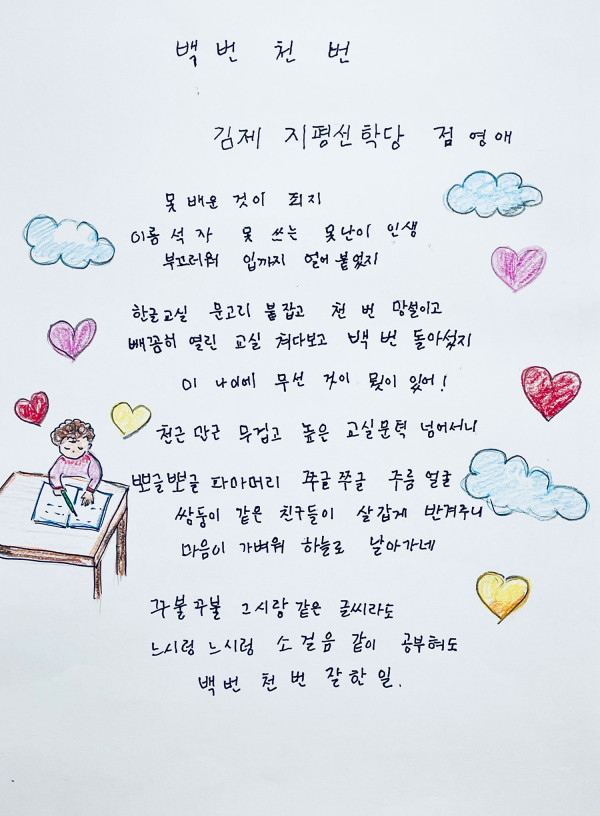 백 번 천 번
김제 지평선학당 점 영애
못 배운 것이 죄지
이름 석 자 못 쓰는 못난이 인생
부끄러워 입까지 얼어 붙었지
한글교실 문고리 붙잡고 천 번 망설이고
빼꼼히 열린 교실 쳐다보고 백 번 돌아섰지
이 나이에 무선 것이 뭣이 있어!
천근 만근 무겁고 높은 교실문턱 넘어서니
뽀글뽀글 파마머리 쭈글쭈글 주름 얼굴
쌍둥이 같은 친구들이 살갑게 반겨주니
마음이 가벼워 하늘로 날아가네
꾸불꾸불 그시랑 같은 글씨라도
느시렁 느시렁 소 걸음 같이 공부혀도
백 번 천 번 잘 한 일.